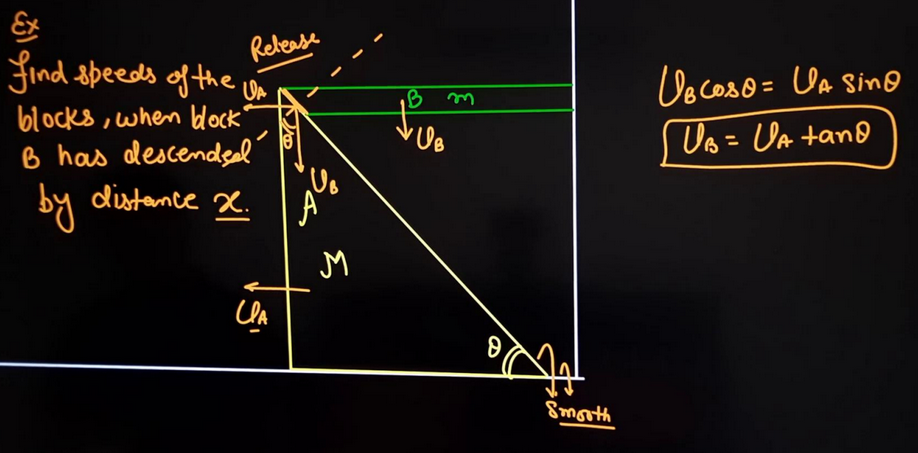 Ex
Find speeds of the
blocks, when block
B has descended
by distance x.
Release
υA
B m
υB
θ
υB
A
M
υA
θ
Smooth
υB cosθ = υA sinθ
υB = υA tanθ